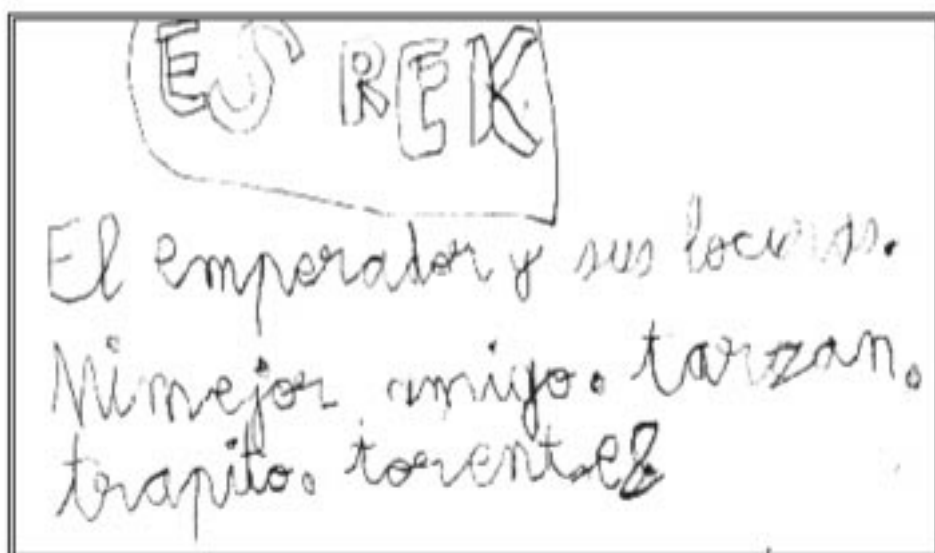 ES REK
El emperador y sus locuras.
Mi mejor amigo. tarzan.
trapito. torente2